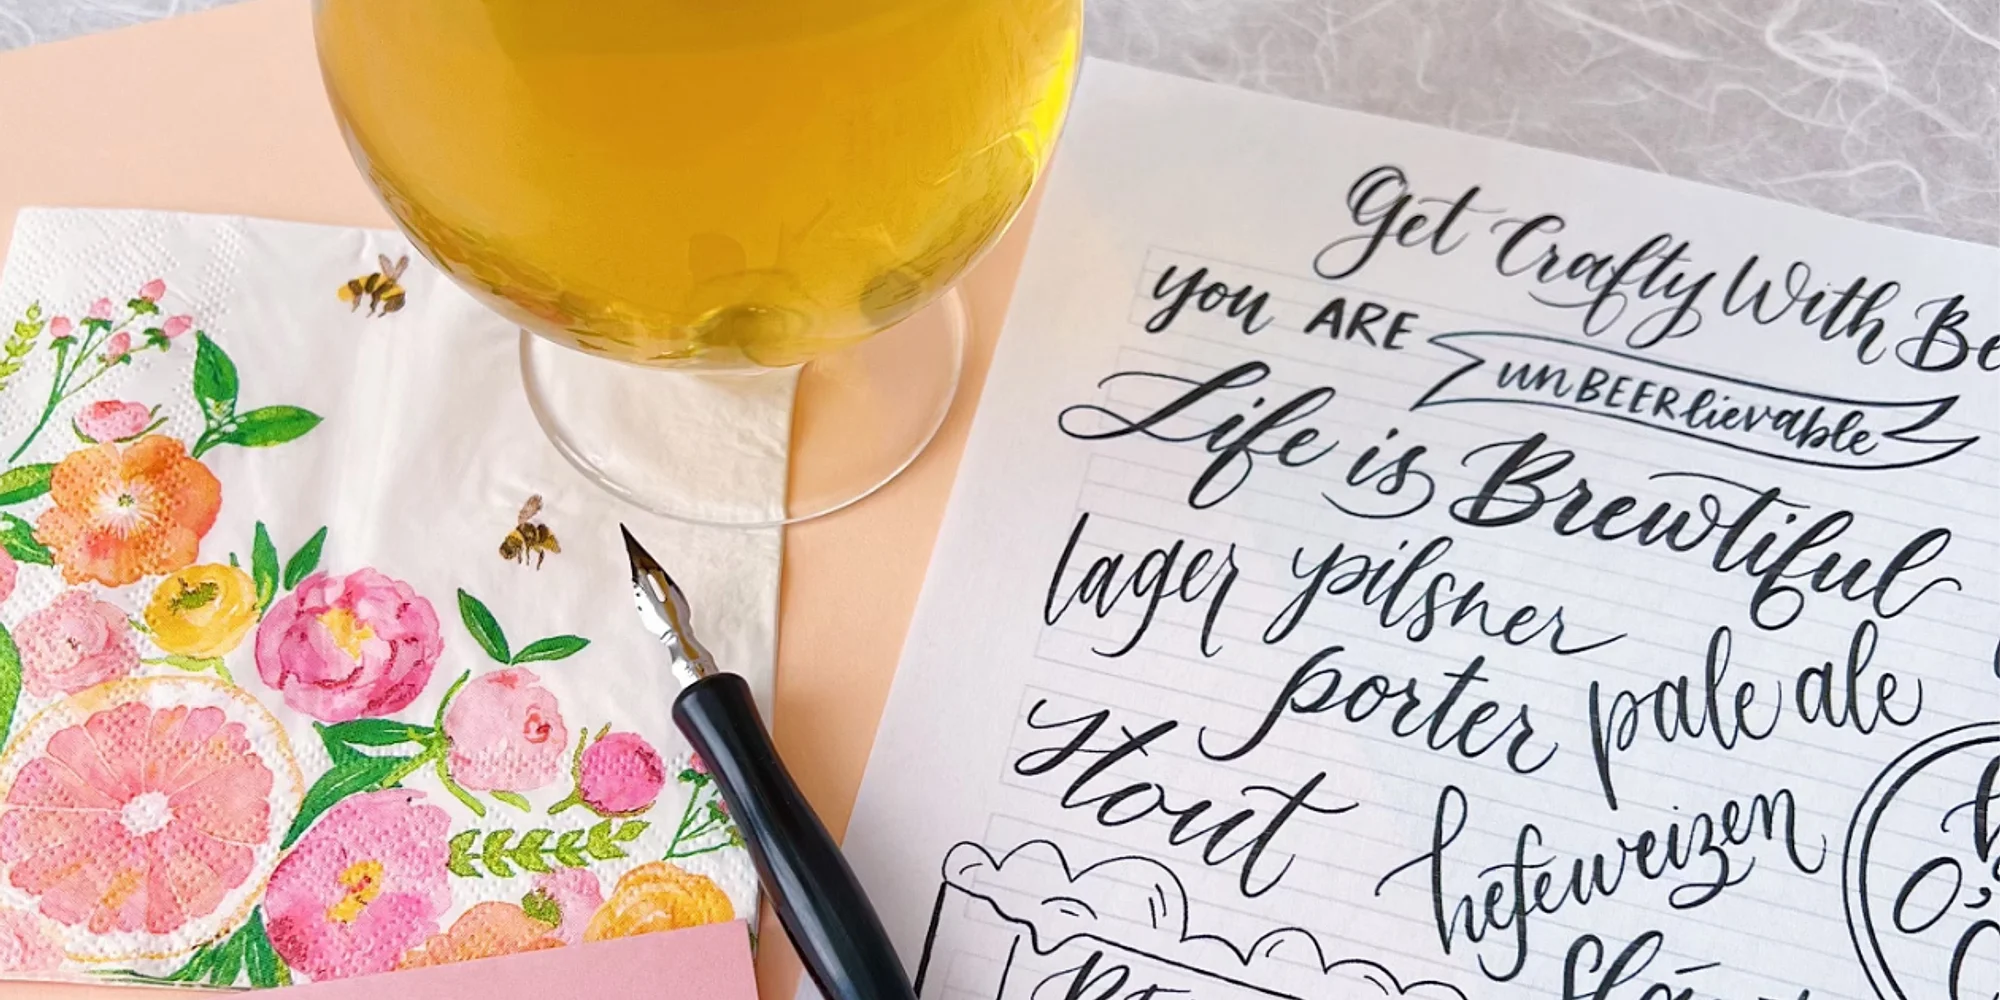 Get Crafty With
you ARE
unBEERlievable
Life is Brewtiful
lager pilsner
porter pale ale
stout
hefeweizen